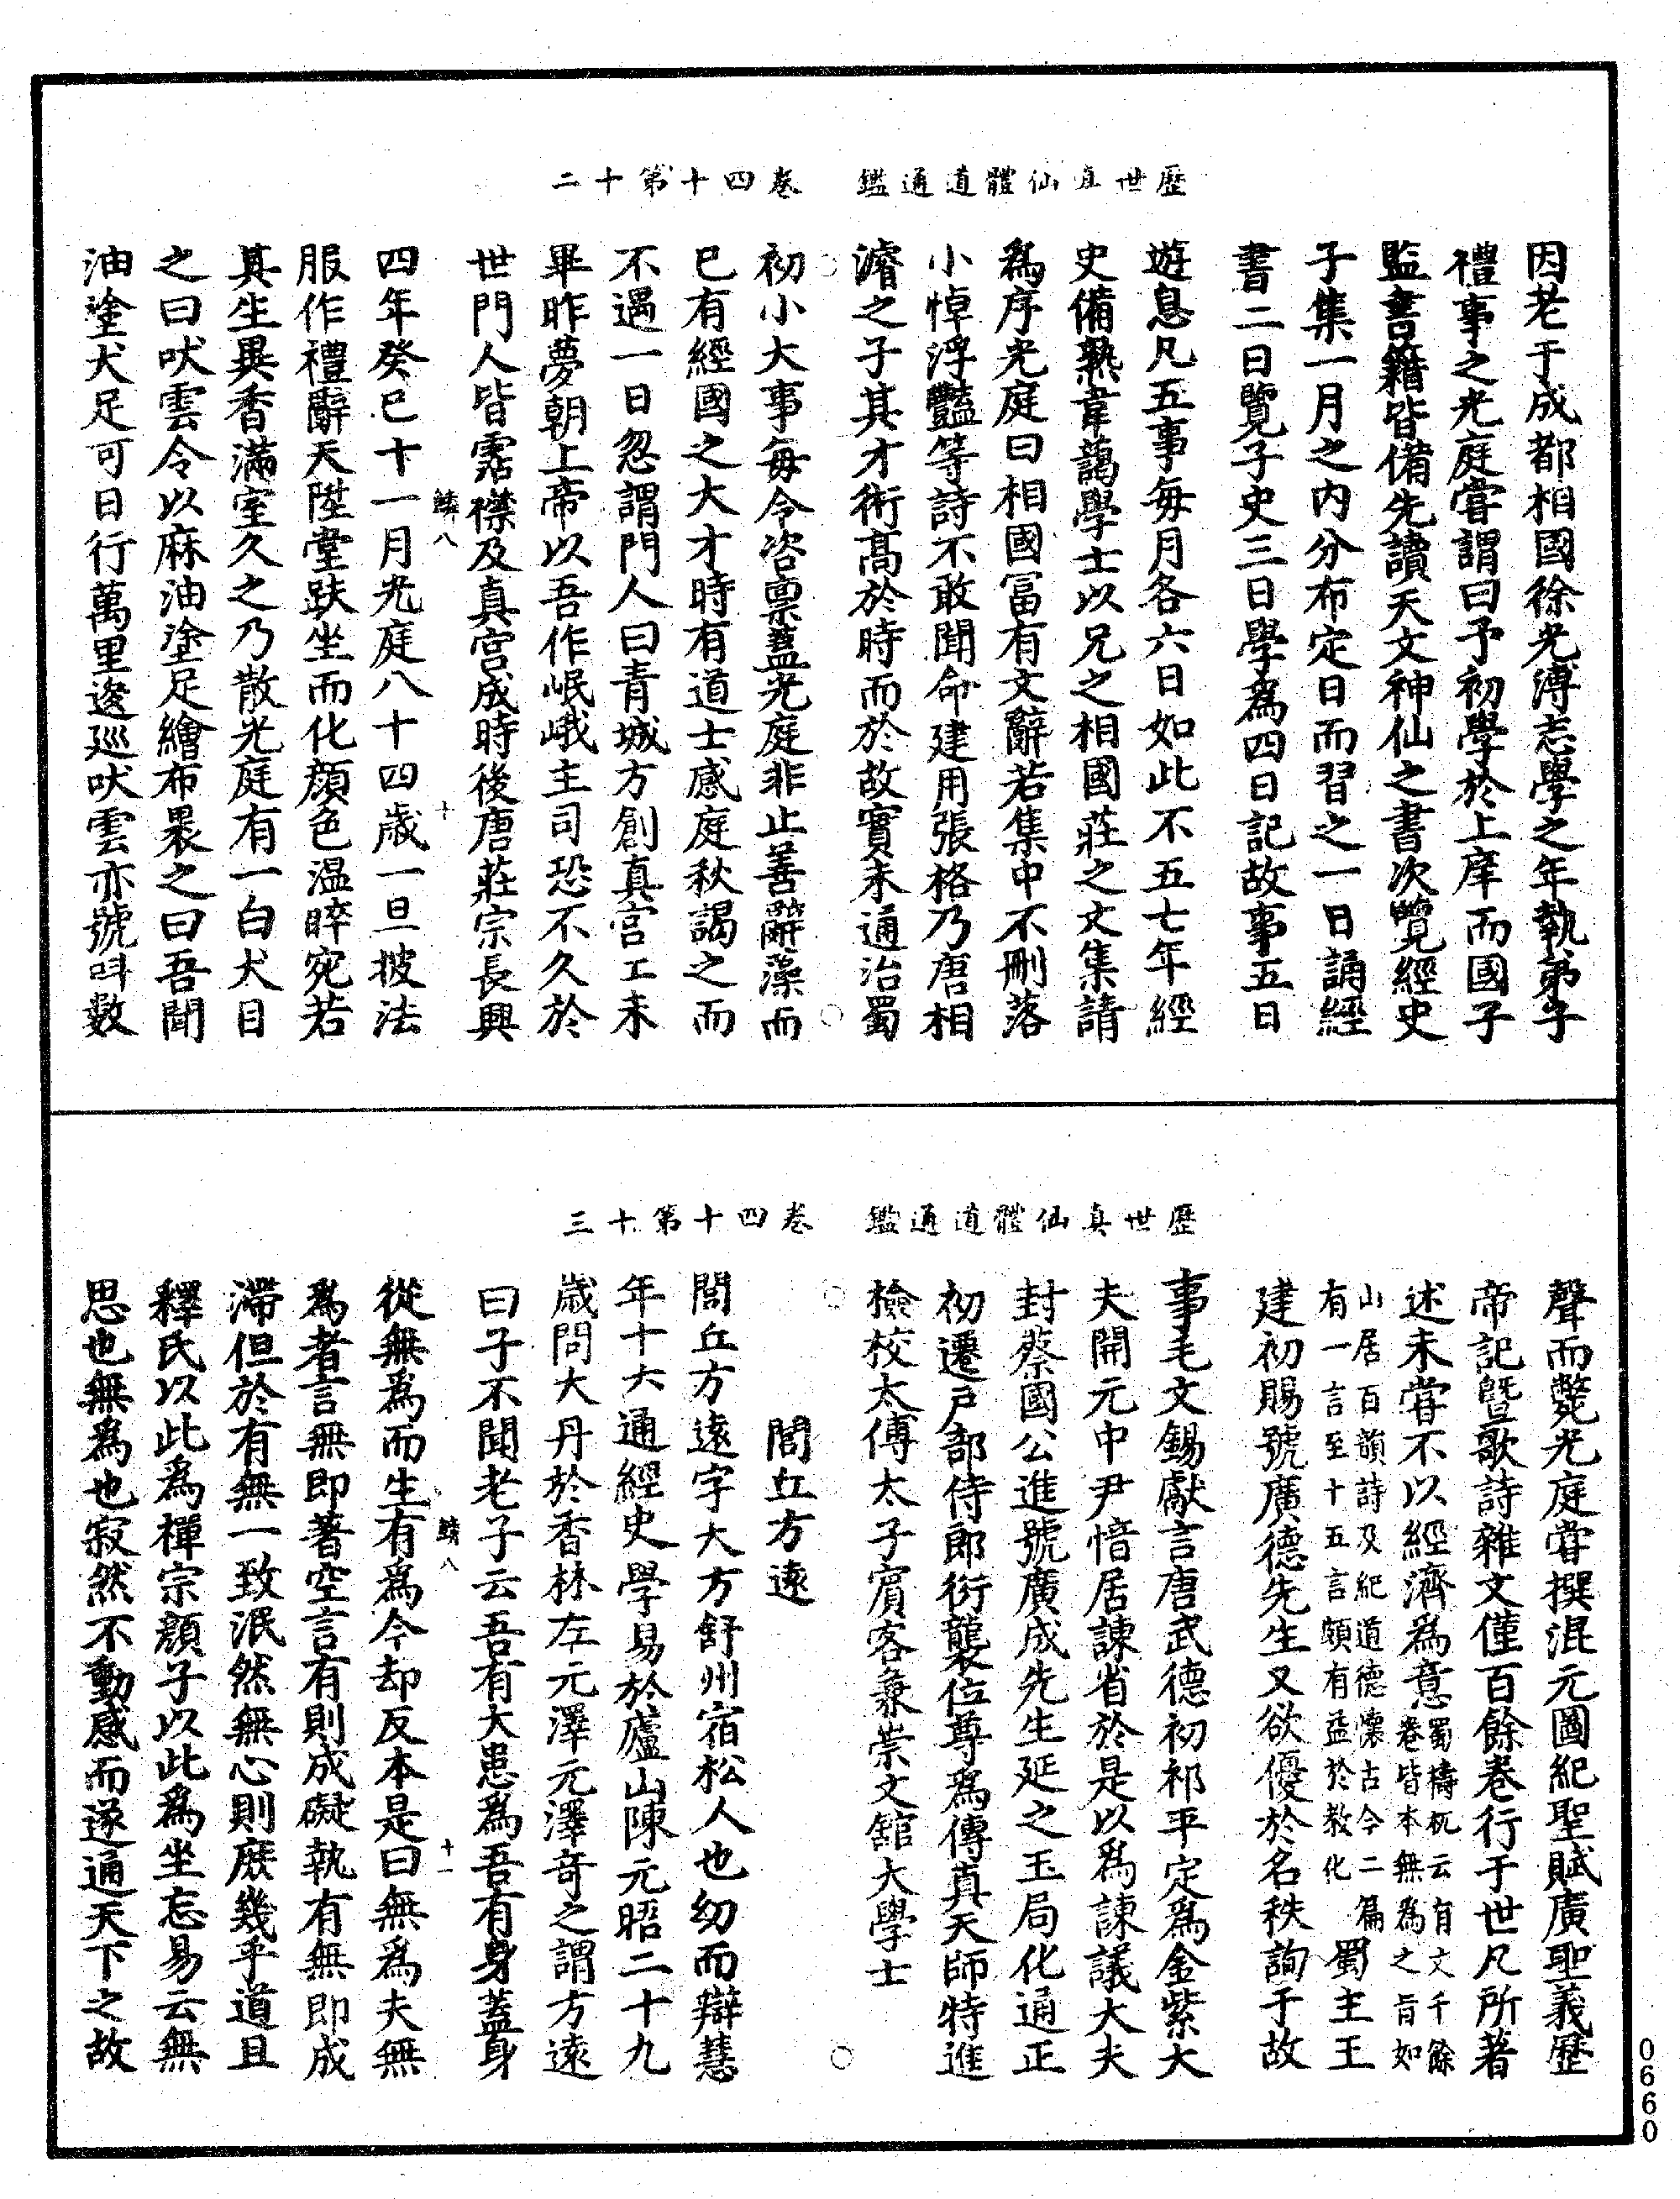 歷世真仙體道通鑑　卷四十第十二
因老于成都相國徐光溥志學之年執弟子
禮事之光庭嘗謂曰予初學於上庠而國子
監書籍皆備先讀天文神仙之書次覽經史
子集一月之內分布定日而習之一日誦經
書二日覽子史三日學為四日記故事五日
遊息凡五事每月各六日如此不五七年經
史備熟韋藹學士以兄之相國莊之文集請
為序光庭曰相國富有文辭若集中不刪落
小悼浮豔等詩不敢聞命建用張格乃唐相
濬之子其才術高於時而於故實未通治蜀
初小大事每令咨稟蓋光庭非止善辭藻而
已有經國之大才時有道士感庭秋謁之而
不遇一日忽謂門人曰青城方創真宮工未
畢昨夢朝上帝以吾作岷峨主司恐不久於
世門人皆霑襟及真宮成時後唐莊宗長興
鱗八　十
四年癸巳十一月光庭八十四歲一旦披法
服作禮辭天陞堂趺坐而化顏色溫晬宛若
其生異香滿室久之乃散光庭有一白犬目
之曰吠雲令以麻油塗足繪布裹之曰吾聞
油塗犬足可日行萬里逡巡吠雲亦號呌數
歷世真仙體道通鑑　卷四十第十三
聲而斃光庭嘗撰混元圖紀聖賦廣聖義歷
帝記暨歌詩雜文僅百餘卷行于世凡所著
述未嘗不以經濟為意蜀檮杌云有文千餘
卷皆本無為之旨如
山居百韻詩及紀道德懷古今二篇
有一言至十五言頗有益於教化蜀主王
建初賜號廣德先生又欲優於名秩詢于故
事毛文錫獻言唐武德初祁平定為金紫大
夫開元中尹愔居諫省於是以為諫議大夫
封蔡國公進號廣成先生延之玉局化通正
初遷戶部侍郎衍襲位尊為傳真天師特進
檢校太傅太子賓客兼崇文舘大學士
閭丘方遠
閭丘方遠字大方舒州宿松人也幼而辯慧
年十六通經史學易於廬山陳元昭二十九
歲問大丹於香林左元澤元澤奇之謂方遠
曰子不聞老子云吾有大患為吾有身蓋身
鱗八　十一
從無為而生有為今却反本是曰無為夫無
為者言無即著空言有則成礙執有無即成
滯但於有無一致泯然無心則庶幾乎道且
釋氏以此為禪宗顏子以此為坐忘易云無
思也無為也寂然不動感而遂通天下之故
0660